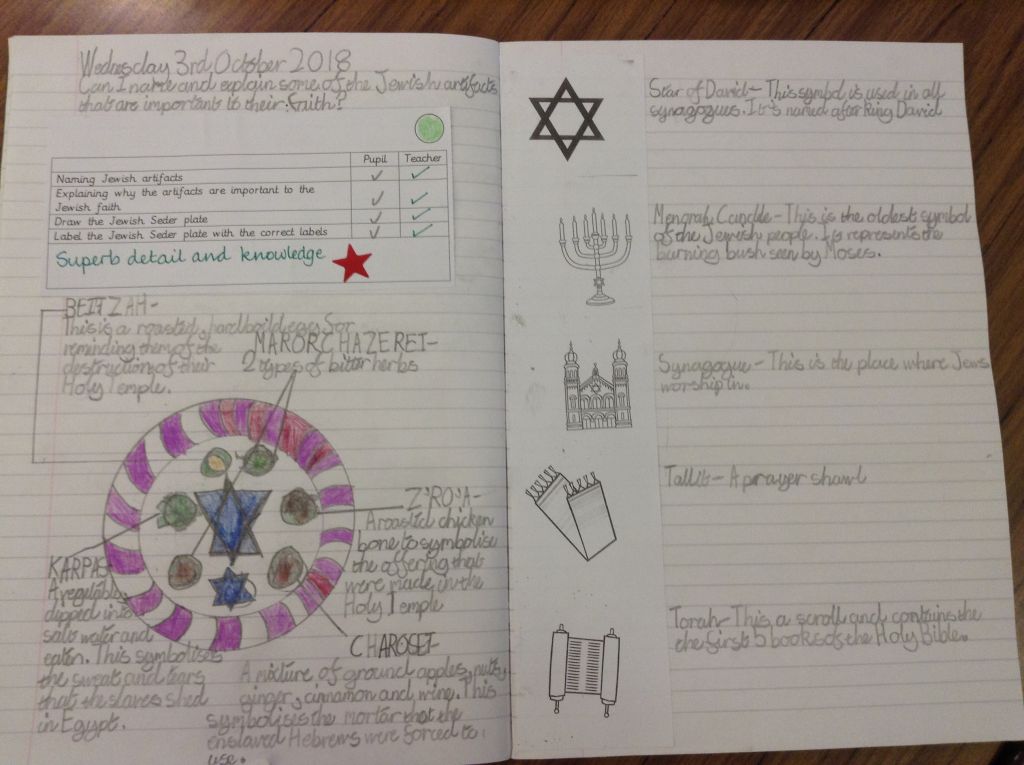 Wednesday 3rd October 2018
Can I name and explain some of the Jewish artifacts
that are important to their faith?
Pupil Teacher
Naming Jewish artifacts
Explaining why the artifacts are important to the
Jewish faith
Draw the Jewish Seder plate
Label the Jewish Seder plate with the correct labels
Superb detail and knowledge
BEITZAH-
This is a roasted, hardboild egg for
reminding them of the
destruction of their
Holy Temple.
MARORCHAZEREI-
2 types of bitter herbs
Z'RO'A-
A roasted chicken
bone to symbolise
the offering that
were made in the
Holy Temple
KARPAS-
A vegetable
dipped into
salt water and
eaten. This symbolises
the sweat and tears
that the slaves shed
in Egypt.
CHAROSET-
A mixture of ground apples, nuts,
ginger, cinnamon and wine. This
symbolises the mortar that the
enslaved Hebrews were forced to
use.
Star of David- This symbol is used in all
synagogues. It's named after King David
Menorah, Candle- This is the oldest symbol
of the Jewish people. It represents the
burning bush seen by Moses.
Synagogue- This is the place where Jews
worship in.
Tallit- A prayer shawl
Torah- This a scroll and contains the
the first 5 books of the Holy Bible.